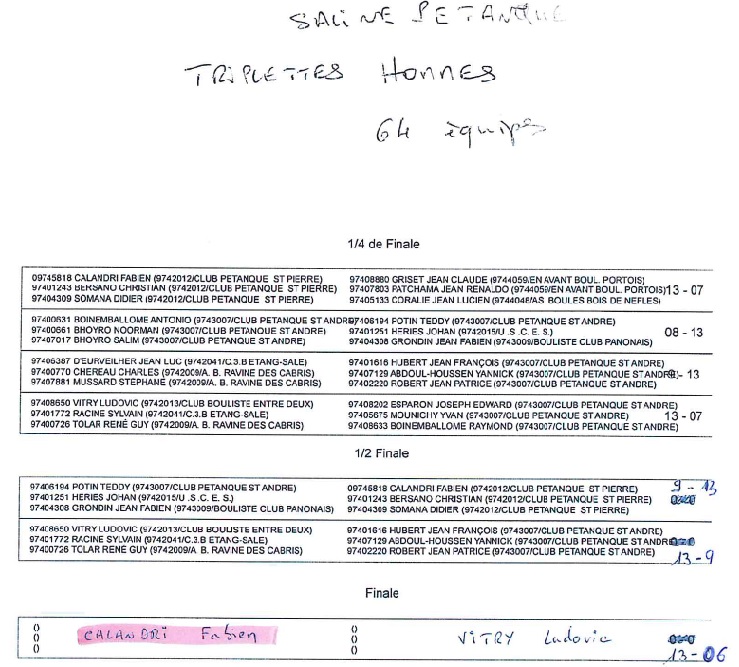 SALINE PETANQUE
TRIPLETTES HOMMES
64 équipes
1/4 de Finale
09745818 CALANDRI FABIEN (9742012/CLUB PETANQUE ST PIERRE) 97408880 GRISET JEAN CLAUDE (9744059/EN AVANT BOUL. PORTOIS)
97401243 BERSANO CHRISTIAN (9742012/CLUB PETANQUE ST PIERRE) 97407803 PATCHAMA JEAN RENALDO (9744059/EN AVANT BOUL. PORTOIS) 13 - 07
97404309 SOMANA DIDIER (9742012/CLUB PETANQUE ST PIERRE) 97405133 CORALIE JEAN LUCIEN (9744048/AS BOULES BOIS DE NEFLES)
97400631 BOINEMBALLOME ANTONIO (9743007/CLUB PETANQUE ST ANDRE) 97406194 POTIN TEDDY (9743007/CLUB PETANQUE ST ANDRE)
97400661 BHOYRO NOORMAN (9743007/CLUB PETANQUE ST ANDRE) 97401251 HERIES JOHAN (9742015/U .S .C. E. S.) 08 - 13
97407017 BHOYRO SALIM (9743007/CLUB PETANQUE ST ANDRE) 97404308 GRONDIN JEAN FABIEN (9743009/BOULISTE CLUB PANONAIS)
97406387 D'EURVEILHER JEAN LUC (9742041/C.3.B ETANG-SALE) 97401616 HUBERT JEAN FRANÇOIS (9743007/CLUB PETANQUE ST ANDRE)
97400770 CHEREAU CHARLES (9742009/A. B. RAVINE DES CABRIS) 97407129 ABDOUL-HOUSSEN YANNICK (9743007/CLUB PETANQUE ST ANDRE) - 13
97407881 MUSSARD STEPHANE (9742009/A. B. RAVINE DES CABRIS) 97402220 ROBERT JEAN PATRICE (9743007/CLUB PETANQUE ST ANDRE)
97408650 VITRY LUDOVIC (9742013/CLUB BOULISTE ENTRE DEUX) 97408202 ESPARON JOSEPH EDWARD (9743007/CLUB PETANQUE ST ANDRE)
97401772 RACINE SYLVAIN (9742041/C.3.B ETANG-SALE) 97405675 MOUNICHY YVAN (9743007/CLUB PETANQUE ST ANDRE) 13 - 07
97400726 TOLAR RENÉ GUY (9742009/A. B. RAVINE DES CABRIS) 97408633 BOINEMBALLOME RAYMOND (9743007/CLUB PETANQUE ST ANDRE)
1/2 Finale
97406194 POTIN TEDDY (9743007/CLUB PETANQUE ST ANDRE) 09745818 CALANDRI FABIEN (9742012/CLUB PETANQUE ST PIERRE) 9 - 13
97401251 HERIES JOHAN (9742015/U .S .C. E. S.) 97401243 BERSANO CHRISTIAN (9742012/CLUB PETANQUE ST PIERRE)
97404308 GRONDIN JEAN FABIEN (9743009/BOULISTE CLUB PANONAIS) 97404309 SOMANA DIDIER (9742012/CLUB PETANQUE ST PIERRE)
97408650 VITRY LUDOVIC (9742013/CLUB BOULISTE ENTRE DEUX) 97401616 HUBERT JEAN FRANÇOIS (9743007/CLUB PETANQUE ST ANDRE)
97401772 RACINE SYLVAIN (9742041/C.3.B ETANG-SALE) 97407129 ABDOUL-HOUSSEN YANNICK (9743007/CLUB PETANQUE ST ANDRE)
97400726 TOLAR RENÉ GUY (9742009/A. B. RAVINE DES CABRIS) 97402220 ROBERT JEAN PATRICE (9743007/CLUB PETANQUE ST ANDRE) 13 - 9
Finale
0 0
0 CALANDRI Fabien 0 VITRY Ludovic
0 0 13 - 06